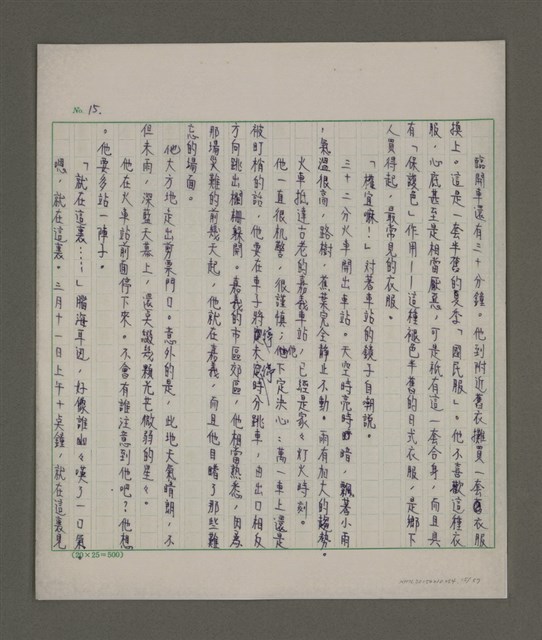 No. 15.
臨開車還有三十分鐘。他到附近舊衣攤買一套衣服
換上。這是一套半舊的夏季「國民服」。他不喜歡這種衣
服,心底甚至是相當厭惡。可是祇有這一套合身,而且具
有「保護色」作用——這種褪色半舊的日式衣服,是鄉下
人買得起,最常見的衣服。
「權宜嘛!」對著車站的鏡子自嘲說。
三十二分火車開出車站。天空時亮時暗,飄著小雨
,氣溫很高,路樹,蕉葉完全靜止不動。雨有加大的趨勢。
火車抵達古老的嘉義車站,已經是家々灯火時刻。
他一直很机警,很謹慎;他下定決心:萬一車上還是
被盯梢的話,他要在車子將停未停時分跳車,由出口相反
方向跳出柵欄躲開。嘉義的市區郊區,他相當熟悉,因為
那場災難的前幾天起,他就在嘉義,而且他目睹了那些難
忘的場面。
他大方地走出剪票門口。意外的是,此地天氣晴朗,不
但未雨,深藍天幕上,還吳綴幾顆光芒微弱的星々。
他在火車站前面停下來。不會有誰注意到他吧?他想
。他要多站一陣子。
「就在這裏……」腦海耳边,好像誰幽々嘆了一口氣。
嗯,就在這裏。三月十一日上午十点鐘,就在這裏見
(20×25=500)